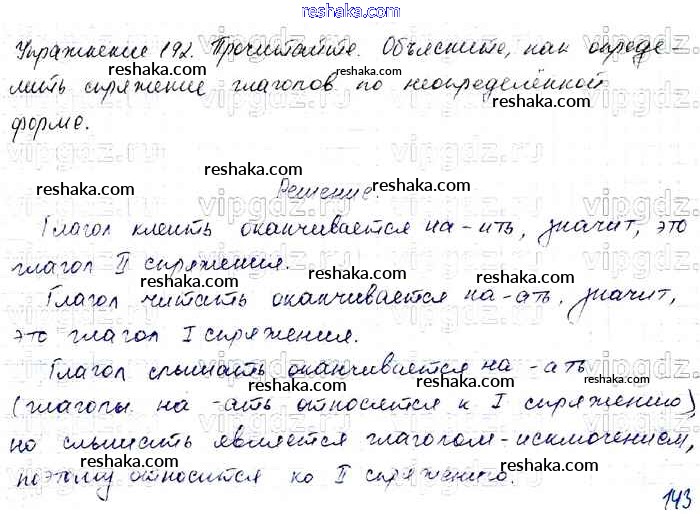 reshaka.com
Упражнение 192. Прочитайте. Объясните, как опреде-
лить спряжение глаголов по неопределённой
форме.
Решение.
Глагол клеить оканчивается на -ить, значит, это
глагол II спряжения.
Глагол читать оканчивается на -ать, значит,
это глагол I спряжения.
Глагол слышать оканчивается на -ать
(глаголы на -ать относятся к I спряжению),
но слышать является глаголом-исключением,
поэтому относится ко II спряжению.
143
reshaka.com